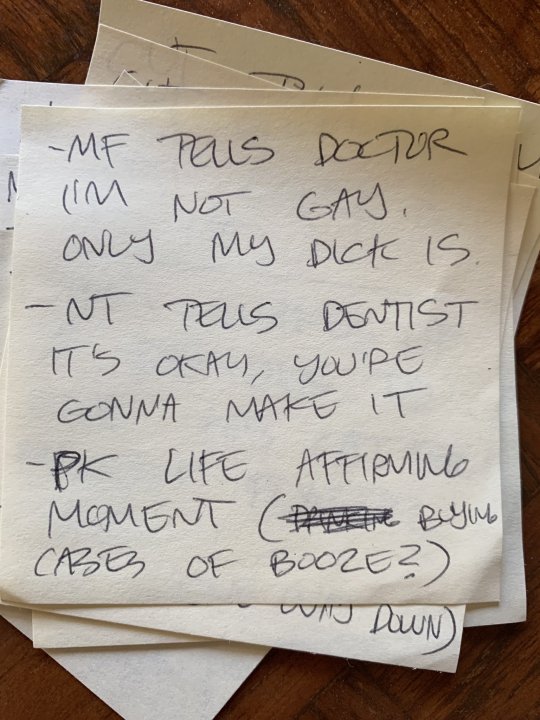 -MF TELLS DOCTOR
I'M NOT GAY.
ONLY MY DICK IS.
-NT TELLS DENTIST
IT'S OKAY, YOU'RE
GONNA MAKE IT
-PK LIFE AFFIRMING
MOMENT ( BUYING
CASES OF BOOZE?)
WAY DOWN)